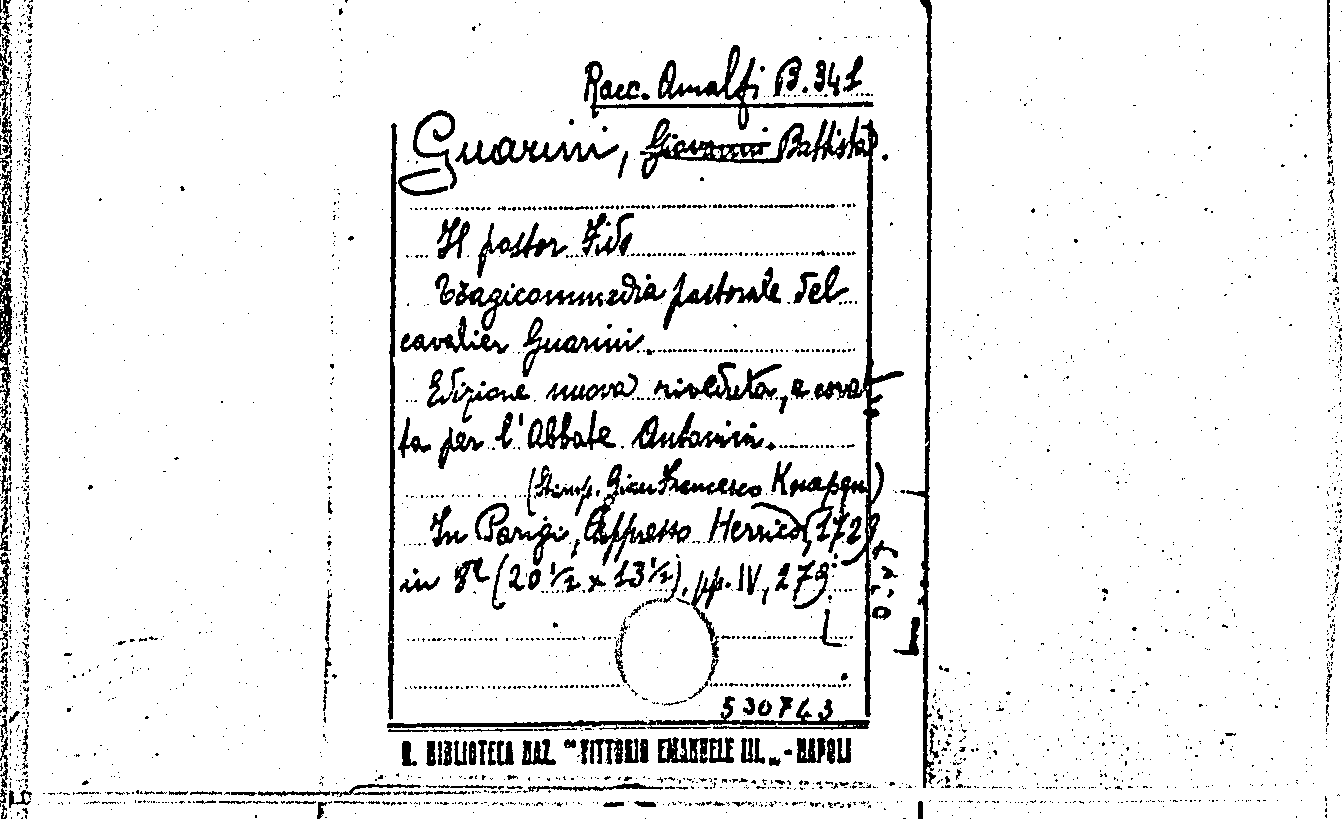 Racc. Amalfi B. 341
Guarini, Giovanni Battista.
Il pastor Fido
Tragicommedia pastorale del
cavalier Guarini.
Edizione nuova riveduta, e
ta per l'Abbate Antonini.
(Stamp. Gian Francesco Knapen)
In Parigi, Appresso Herrico, 172
in 8º (20 ½ x 13 ½), pp. IV, 279.
530743
R. BIBLIOTECA NAZ. "VITTORIO EMANUELE III„ - NAPOLI